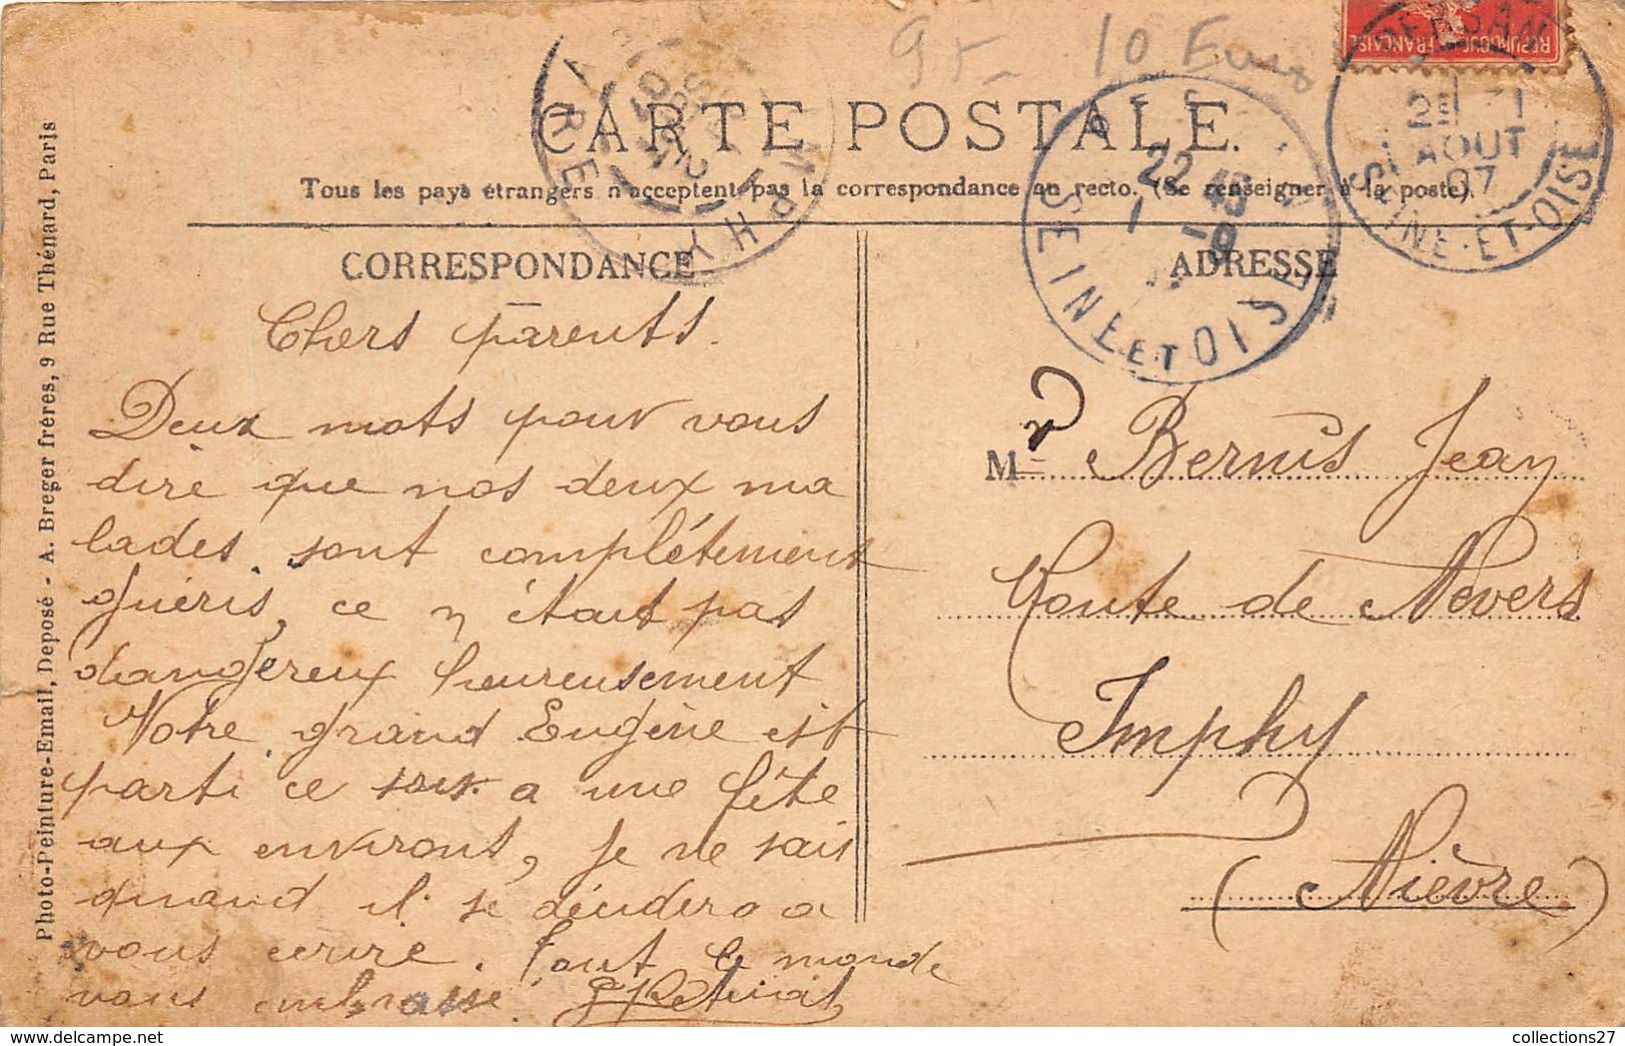 95- 10 Euros
RÉPUBLIQUE FRANÇAISE
PERSAN
AOUT
07
SEINE-ET-OISE
22 45
1 -9
SEINE ET OISE
IMPHY
CARTE POSTALE.
Tous les pays étrangers n'acceptent pas la correspondance au recto. (Se renseigner à la poste).
CORRESPONDANCE
Chers parents.
Deux mots pour vous
dire que nos deux ma
lades sont complétement
guéris, ce n'était pas
dangereux heureusement
Votre grand Eugène est
parti ce soir a une fête
aux environs, je ne sais
quand il se décidera a
vous ecrire. Tout le monde
vous embrasse.
ADRESSE
Mr Bernis Jean
Route de Nevers
Imphy
(Nièvre)
Photo-Peinture-Email, Deposé - A. Breger frères, 9 Rue Thénard, Paris
collections27